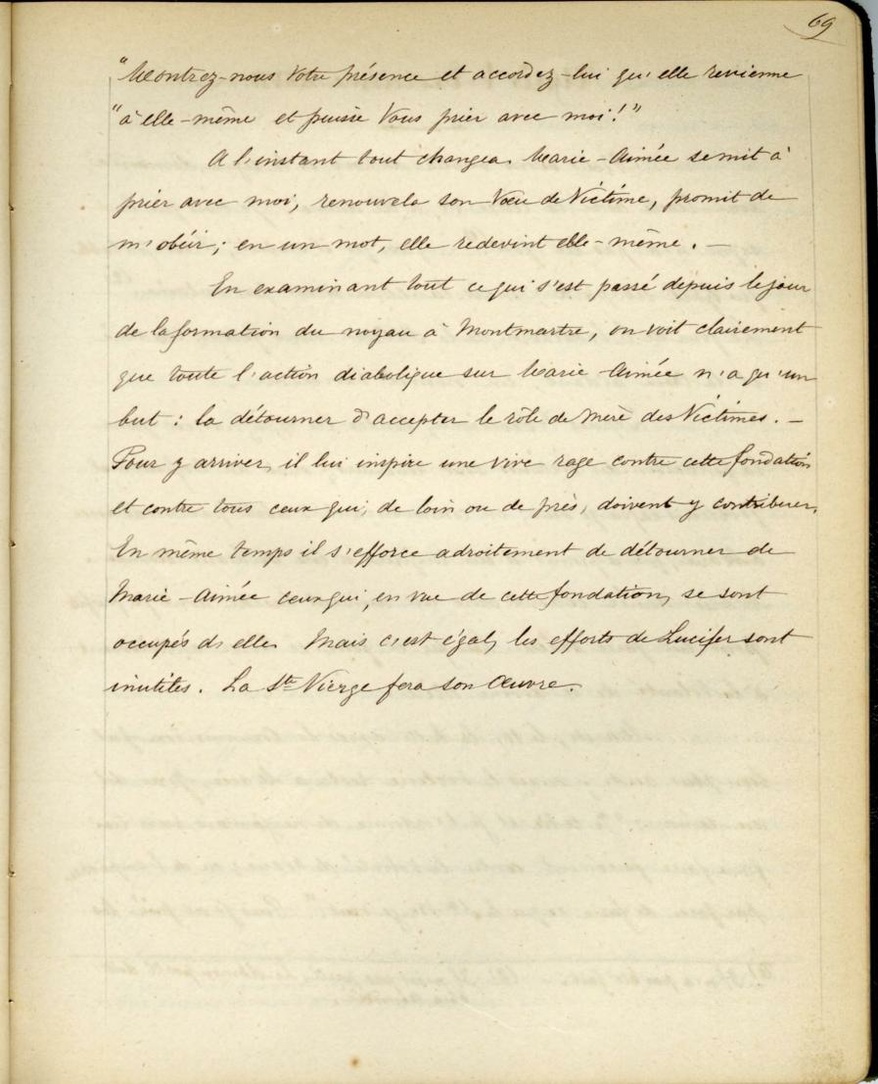 69
"Montrez-nous Votre présence et accordez-lui qu'elle revienne
"à elle-même et puisse Vous prier avec moi!"
A l'instant tout changea. Marie-Aimée se mit à
prier avec moi, renouvela son Vœu de Victime, promit de
m'obéir; en un mot, elle redevint elle-même. —
En examinant tout ce qui s'est passé depuis le jour
de la formation du noyau à Montmartre, on voit clairement
que toute l'action diabolique sur Marie-Aimée n'a qu'un
but : la détourner d'accepter le rôle de Mère des Victimes. —
Pour y arriver, il lui inspire une vive rage contre cette fondation
et contre tous ceux qui, de loin ou de près, doivent y contribuer.
En même temps il s'efforce adroitement de détourner de
Marie-Aimée ceux qui, en vue de cette fondation, se sont
occupés d'elle. Mais c'est égal, les efforts de Lucifer sont
inutiles. La Ste Vierge fera son Œuvre.